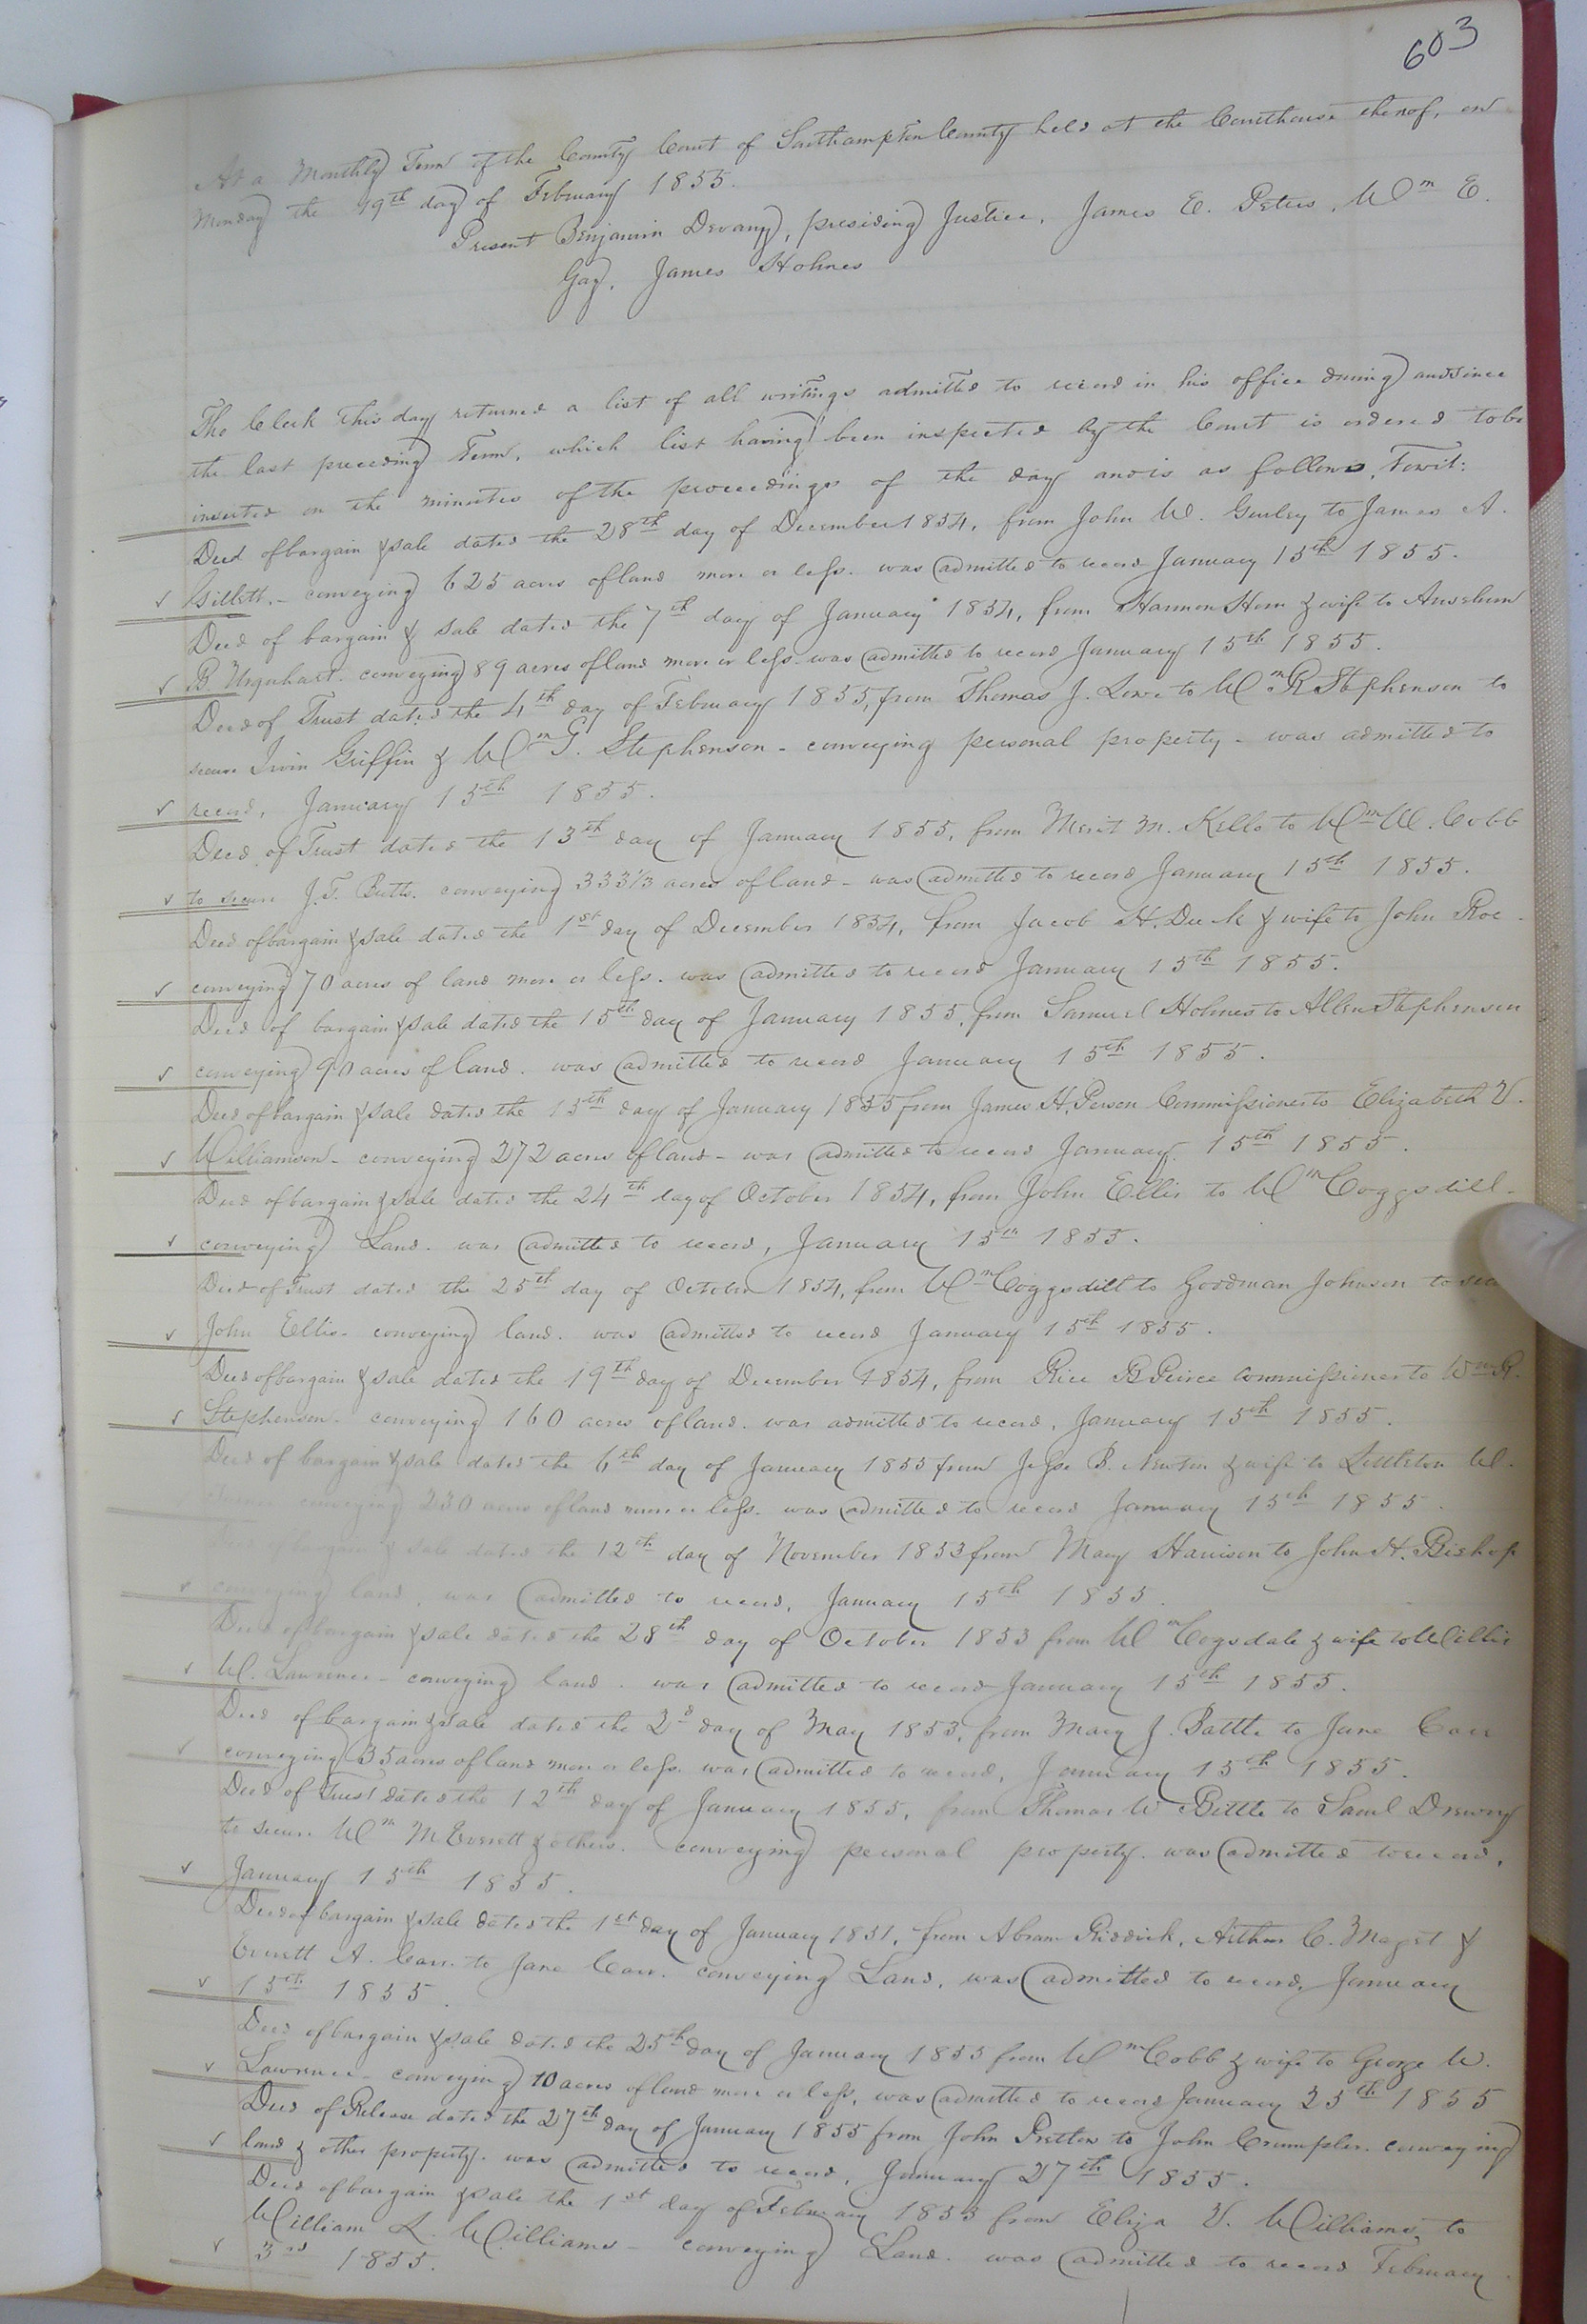 603
At a Monthly Term of the County Court of Southampton County held at the Courthouse thereof, on
Monday the 19th day of February 1855.
Present Benjamin Devany, presiding Justice, James E. Peters, Wm E.
Gay, James Holmes
The Clerk this day returned a list of all writings admitted to record in his office during and since
the last preceeding Term, which list having been inspected by the Court is ordered to be
inserted on the minutes of the proceedings of the day and is as follows, Towit:
Deed of bargain & sale dated the 28th day of December 1854, from John W. Gurley to James A.
Gillett. - conveying 625 acres of land more or less. was admitted to record January 15th 1855.
Deed of bargain & sale dated the 7th day of January 1854, from Harmon Horn & wife to Anselum
B. Urquhart. conveying 89 acres of land more or less. was admitted to record January 15th 1855.
Deed of Trust dated the 4th day of February 1855, from Thomas J. Lowe to Wm R Stephenson to
secure Irvin Griffin & Wm G. Stephenson - conveying personal property - was admitted to
record, January 15th 1855.
Deed of Trust dated the 13th day of January 1855, from Merit M. Kello to Wm W. Cobb
to secure J. T. Butts. conveying 333 1/3 acres of land - was admitted to record January 15th 1855.
Deed of bargain & sale dated the 1st day of December 1854, from Jacob H. Duck & wife to John Roe -
conveying 70 acres of land more or less. was admitted to record January 15th 1855.
Deed of bargain & sale dated the 15th day of January 1855, from Samuel Holmes to Allen Stephenson
conveying 90 acres of land. was admitted to record January 15th 1855.
Deed of bargain & sale dated the 15th day of January 1855 from James H. Person Commissioner to Elizabeth V.
Williamson - conveying 272 acres of land - was admitted to record January 15th 1855.
Deed of bargain & sale dated the 24th day of October 1854, from John Ellis to Wm Coggsdill -
conveying Land. was admitted to record, January 15th 1855.
Deed of Trust dated the 25th day of October 1854, from Wm Coggsdill to Goodman Johnson to
John Ellis - conveying land. was admitted to record January 15th 1855.
Deed of bargain & sale dated the 19th day of December 1854, from Rice B Peirce commissioner to Wm R.
Stephenson - conveying 160 acres of land. was admitted to record, January 15th 1855.
Deed of bargain & sale dated the 6th day of January 1855 from Jesse B. Newton & wife to Littleton W.
conveying 230 acres of land more or less. was admitted to record January 15th 1855.
Deed of bargain & sale dated the 12th day of November 1853 from Mary Harrison to John H. Bishop
conveying land, was admitted to record, January 15th 1855.
Deed of bargain & sale dated the 28th day of October 1853 from Wm Cogsdale & wife to Willis
W. Lawrence - conveying land. was admitted to record January 15th 1855.
Deed of bargain & sale dated the 2d day of May 1853, from Mary J. Battle to Jane Carr
conveying 35 acres of land more or less. was admitted to record, January 15th 1855.
Deed of Trust dated the 12th day of January 1855, from Thomas W Bittle to Saml Drewry
to secure Wm M Everett & others. conveying personal property. was admitted to record,
January 15th 1855.
Deed of bargain & sale dated the 1st day of January 1851, from Abram Riddick, Arthur C. Maget &
Everett A. Carr. to Jane Carr. conveying Land, was admitted to record, January
15th 1855.
Deed of bargain & sale dated the 25th day of January 1855 from Wm Cobb & wife to George W.
Lawrence - conveying 10 acres of land more or less, was admitted to record January 25th 1855
Deed of Release dated the 27th day of January 1855 from John Pretlow to John Crumpler. conveying
land & other property. was admitted to record, January 27th 1855.
Deed of bargain & sale the 1st day of February 1853 from Eliza V. Williams, to
William L. Williams - conveying Land. was admitted to record February
3rd 1855.